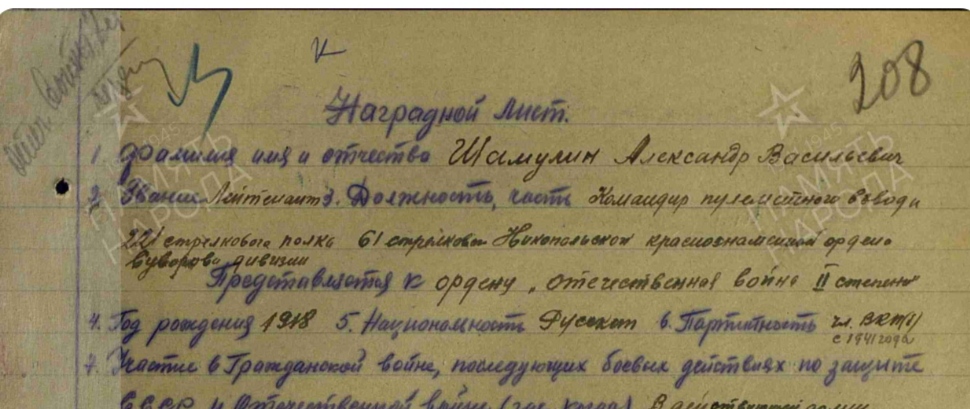 К
208
Наградной Лист.
1. Фамилия имя и отчество Шамулин Александр Васильевич
2. Звание Лейтенант 3. Должность, часть Командир пулеметного взвода
221 стрелкового полка 61 стрелковой Никопольской краснознаменной ордена
Суворова дивизии
Представляется к ордену „отечественная война II степени"
4. Год рождения 1918 5. Национальность Русский 6. Партийность чл. ВКП(б)
с 1941 года
7. Участие в Гражданской войне, последующих боевых действиях по защите
СССР и Отечественной войне (где, когда) В действующей армии
ПАМЯТЬ
НАРОДА
ПАМЯТЬ
НАРОДА